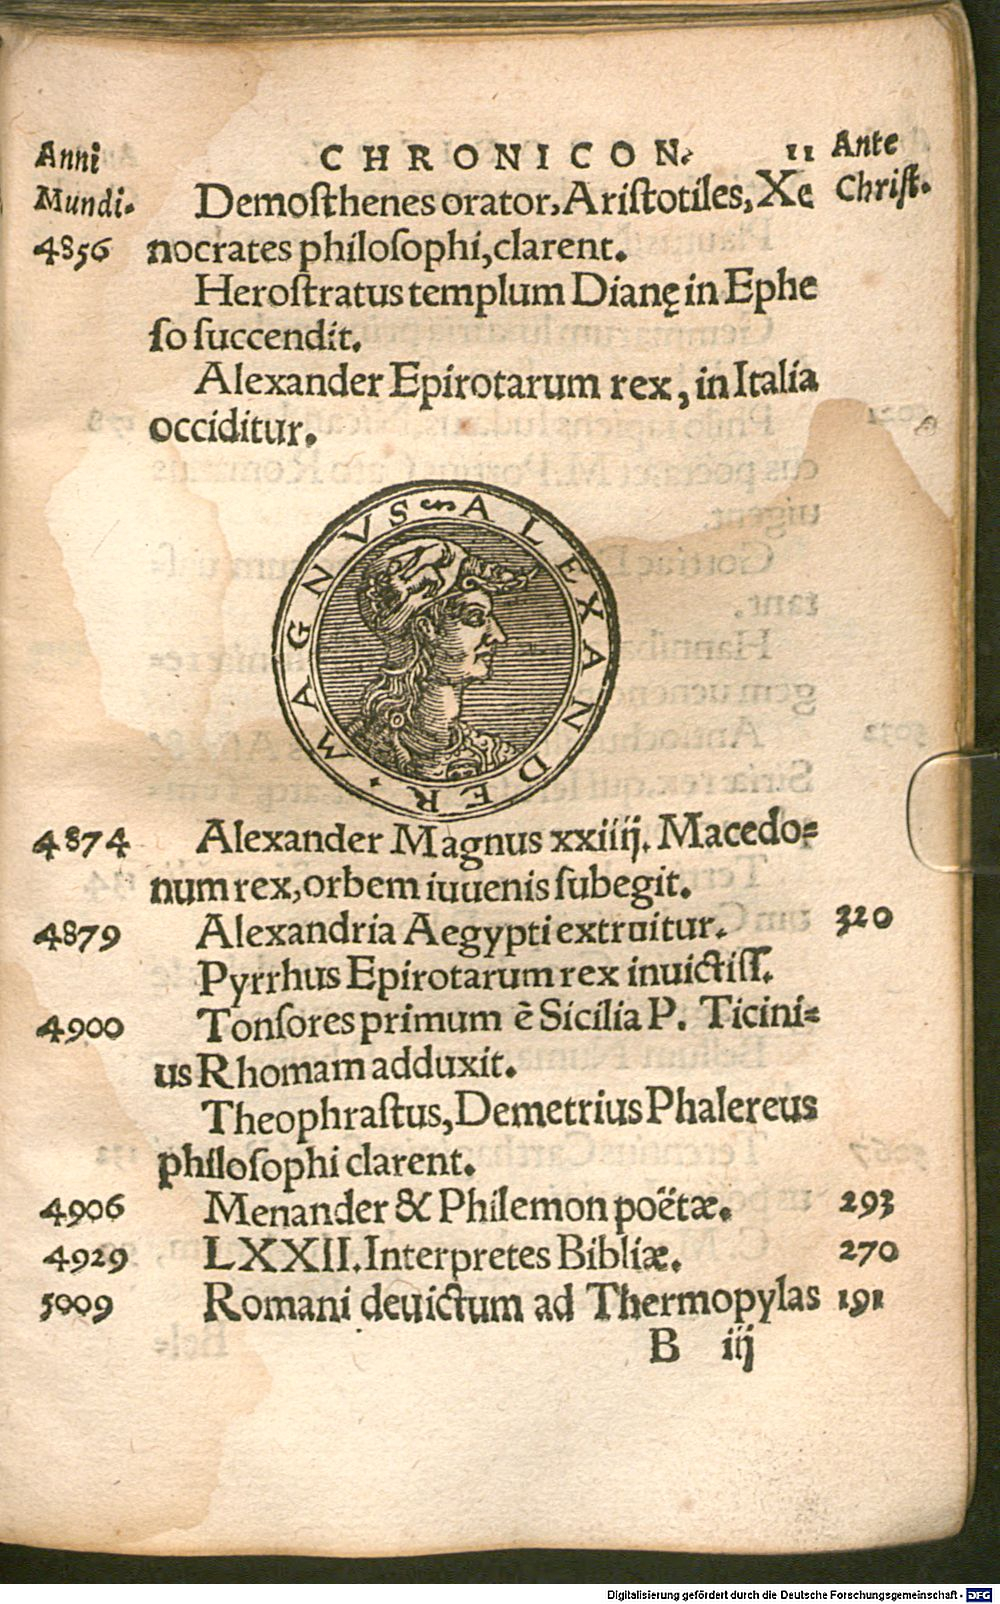 Anni CHRONICON. 11 Ante
Mundi. Demoſthenes orator, Ariſtotiles, Xe Chriſt.
4856 nocrates philoſophi, clarent.
Heroſtratus templum Dianę in Ephe
ſo ſuccendit.
Alexander Epirotarum rex, in Italia
occiditur.
ALEXANDER MAGNVS
4874 Alexander Magnus xxiiij. Macedo⸗
num rex, orbem iuuenis ſubegit.
4879 Alexandria Aegypti extruitur. 320
Pyrrhus Epirotarum rex inuictiſſ.
4900 Tonſores primum ē Sicilia P. Ticini⸗
us Rhomam adduxit.
Theophraſtus, Demetrius Phalereus
philoſophi clarent.
4906 Menander & Philemon poëtæ. 293
4929 LXXII. Interpretes Bibliæ. 270
5009 Romani deuictum ad Thermopylas 191
B iij
Digitalisierung gefördert durch die Deutsche Forschungsgemeinschaft - DFG